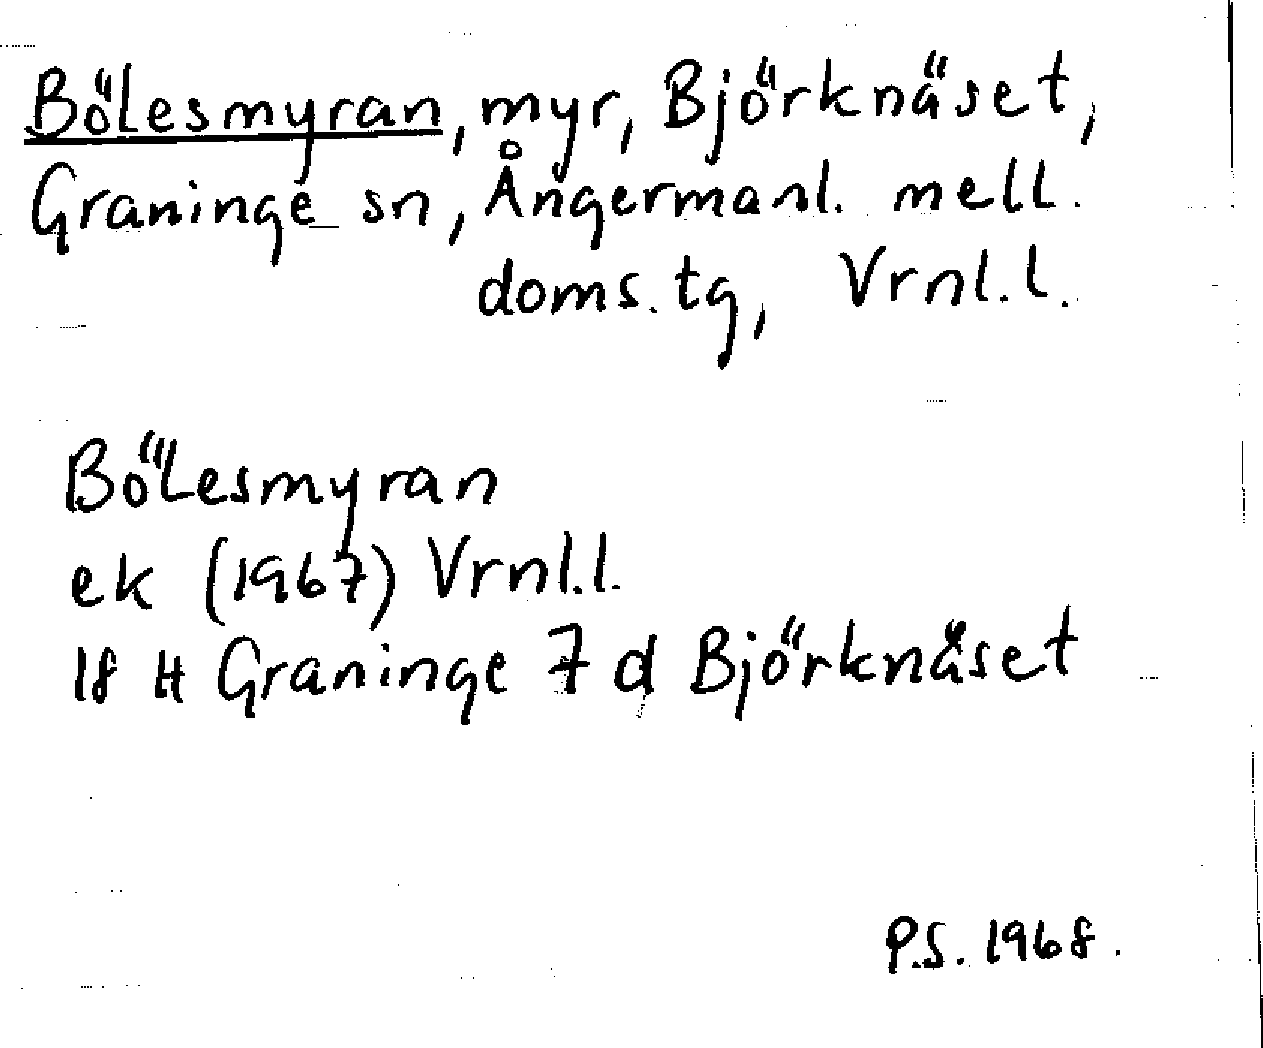 Bölesmyran, myr, Björknäset,
Graninge sn, Ångermanl. mell.
doms. tg, Vrnl.l.
Bölesmyran
ek (1967) Vrnl.l.
18 H Graninge 7 d Björknäset
P.S. 1968.